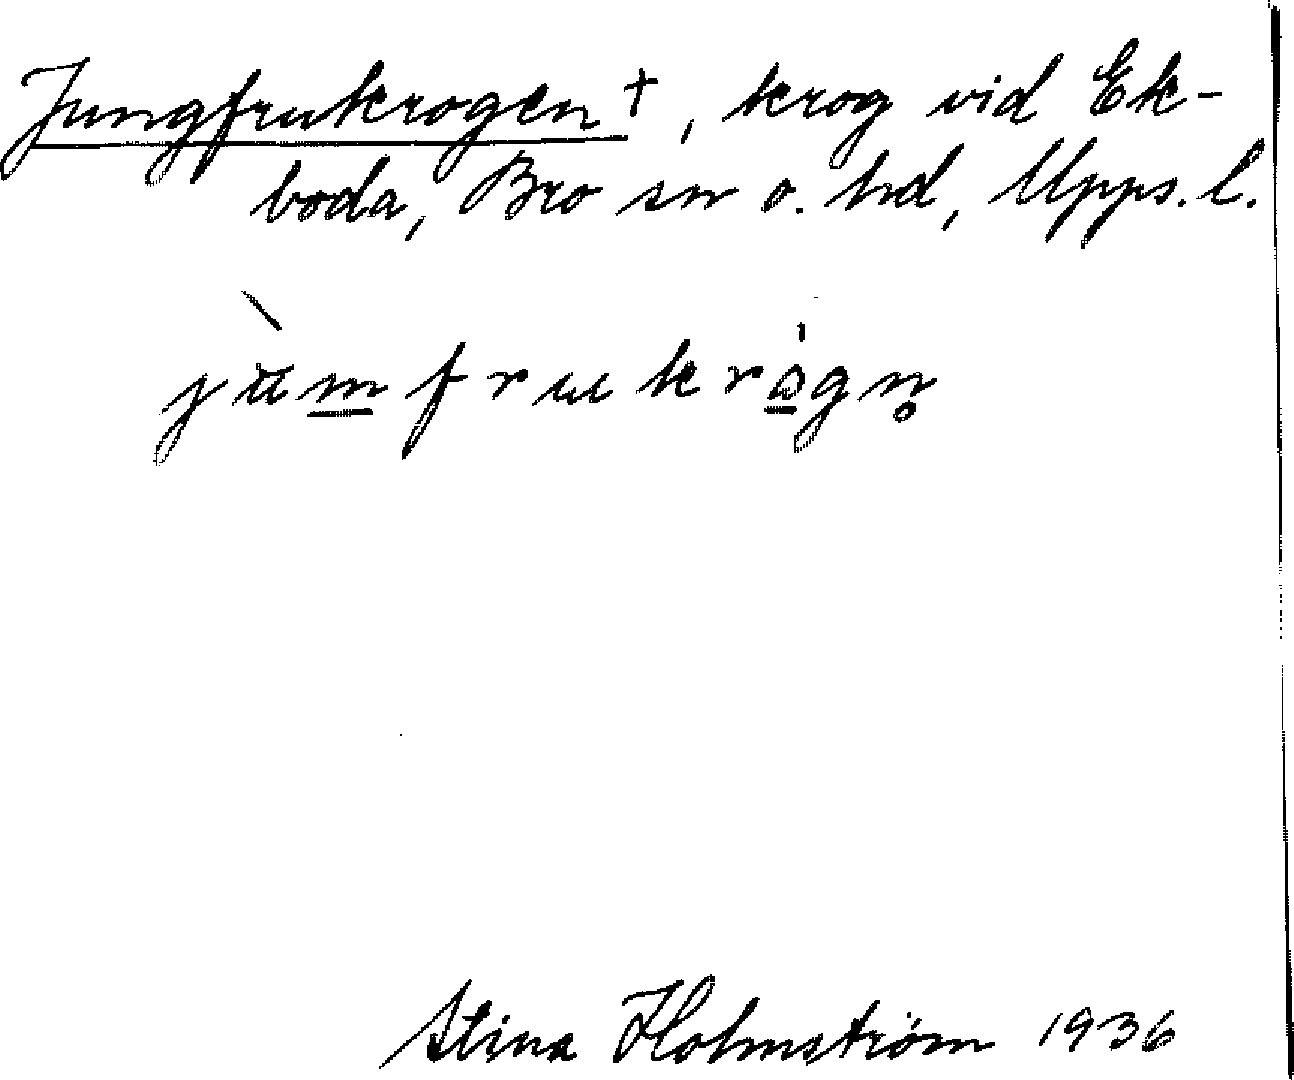 Jungfrukrogen †, krog vid Ek-
boda, Bro sn o. hd, Upps. l.
jùm̲frukrò̲gn̥
Stina Holmström 1936